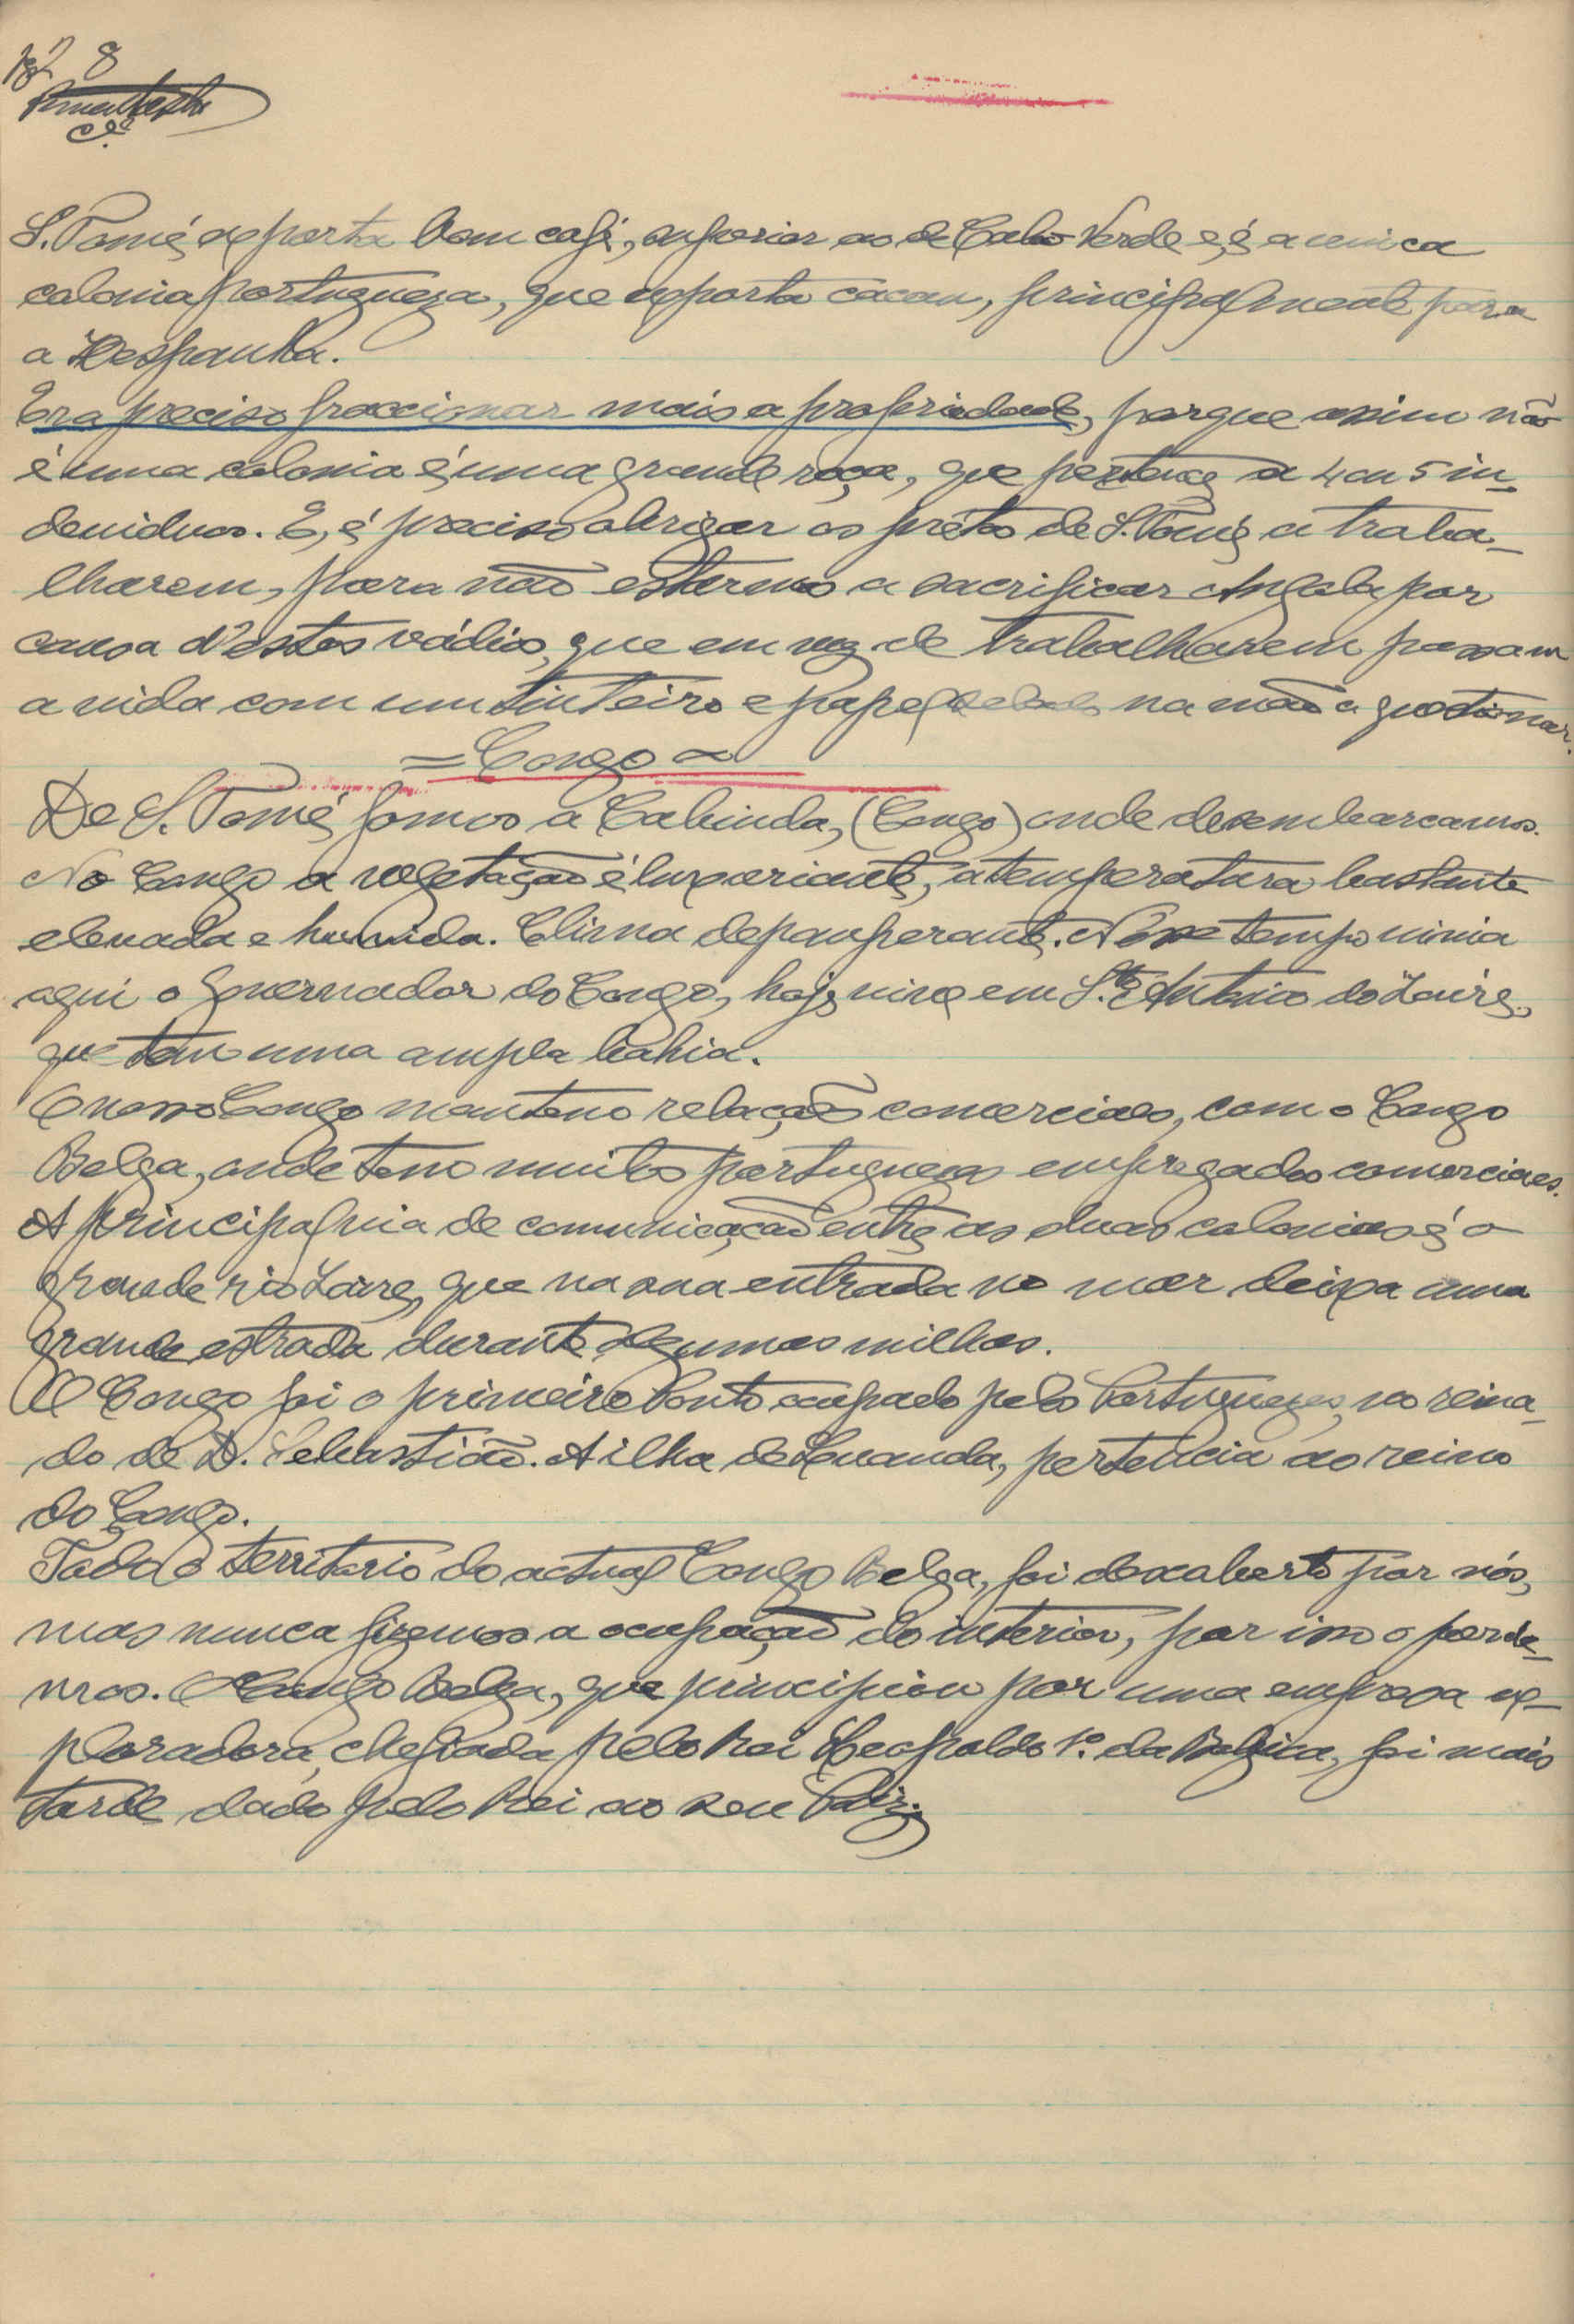 8
S. Tomé, exporta bom café, superior ao de Cabo Verde e, é a unica
colonia portugueza, que exporta cacau, principalmente para
a Hespanha.
Era preciso fraccionar mais a propriedade, porque assim não
é uma colonia é, uma grande roça, que pertence a 4 ou 5 in-
deviduos. E, é preciso obrigar os prétos de S. Tomé, a traba-
lharem, para não estarmos a sacrificar Angola por
causa d'estes vádios, que em vez de trabalharem passam
a vida com um tinteiro e papel selado na mão a questionar.
= Congo =
De S. Tomé, fomos a Cabinda, (Congo) onde desembarcamos.
No Congo a vegetação é luxoriante, a temperatura bastante
elevada e humida. Clima depauperante. N'esse tempo vivia
aqui o Governador do Congo, hoje, vive em S.to Antonio do Zaire,
que tem uma ampla bahia.
O nosso Congo mantem relações comerciaes, com o Congo
Belga, onde tem muitos portuguezes empregados comerciaes.
A principal via de comunicação entre as duas colonias é, o
grande rio Zaire, que na sua entrada no mar deixa uma
grande estrada durante algumas milhas.
O Congo foi o primeiro Ponto ocupado pelos Portuguezes, no reina-
do de D. Sebastião. A ilha de Luanda, pertencia ao reino
do Congo.
Todo o territorio do actual Congo Belga, foi descoberto por nós,
mas nunca fizemos a ocupação do interior, por isso o perde-
mos. O Congo Belga, que principiou por uma empresa ex-
ploradora, chefiada pelo Rei Leopoldo 1º. da Belgica, foi mais
tarde dado pelo Rei ao seu Paiz.